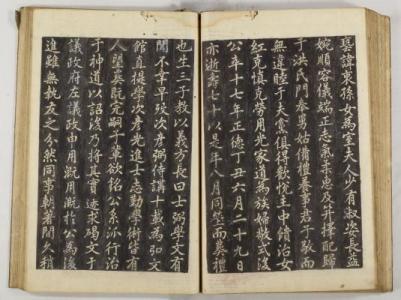 諱東孫女為室夫人少有淑姿長益
婉順容儀端正志氣柔惠及笄擇配歸
于洪氏門奉舅姑備禮養事君子敬而
無違睦于夫黨俱得歡悅主中饋治女
紅克慎克勞用光家道為族婦敎式後
公年十七年正德丁丑六月二十九日
亦逝壽七十以是年八月同塋而異
也生三子教以義方長曰士弼學文有
聞不幸早歿次彥弼侍講十載為弘文
館直提學次彥光進士志勤學術皆有
人望奠既完嗣子輩欲銘公系派行治
于神道以詔後乃將其實迹求碣文于
議政府左議政申用漑用漑於公為後
進雖無執友之分然同事朝著間久稍